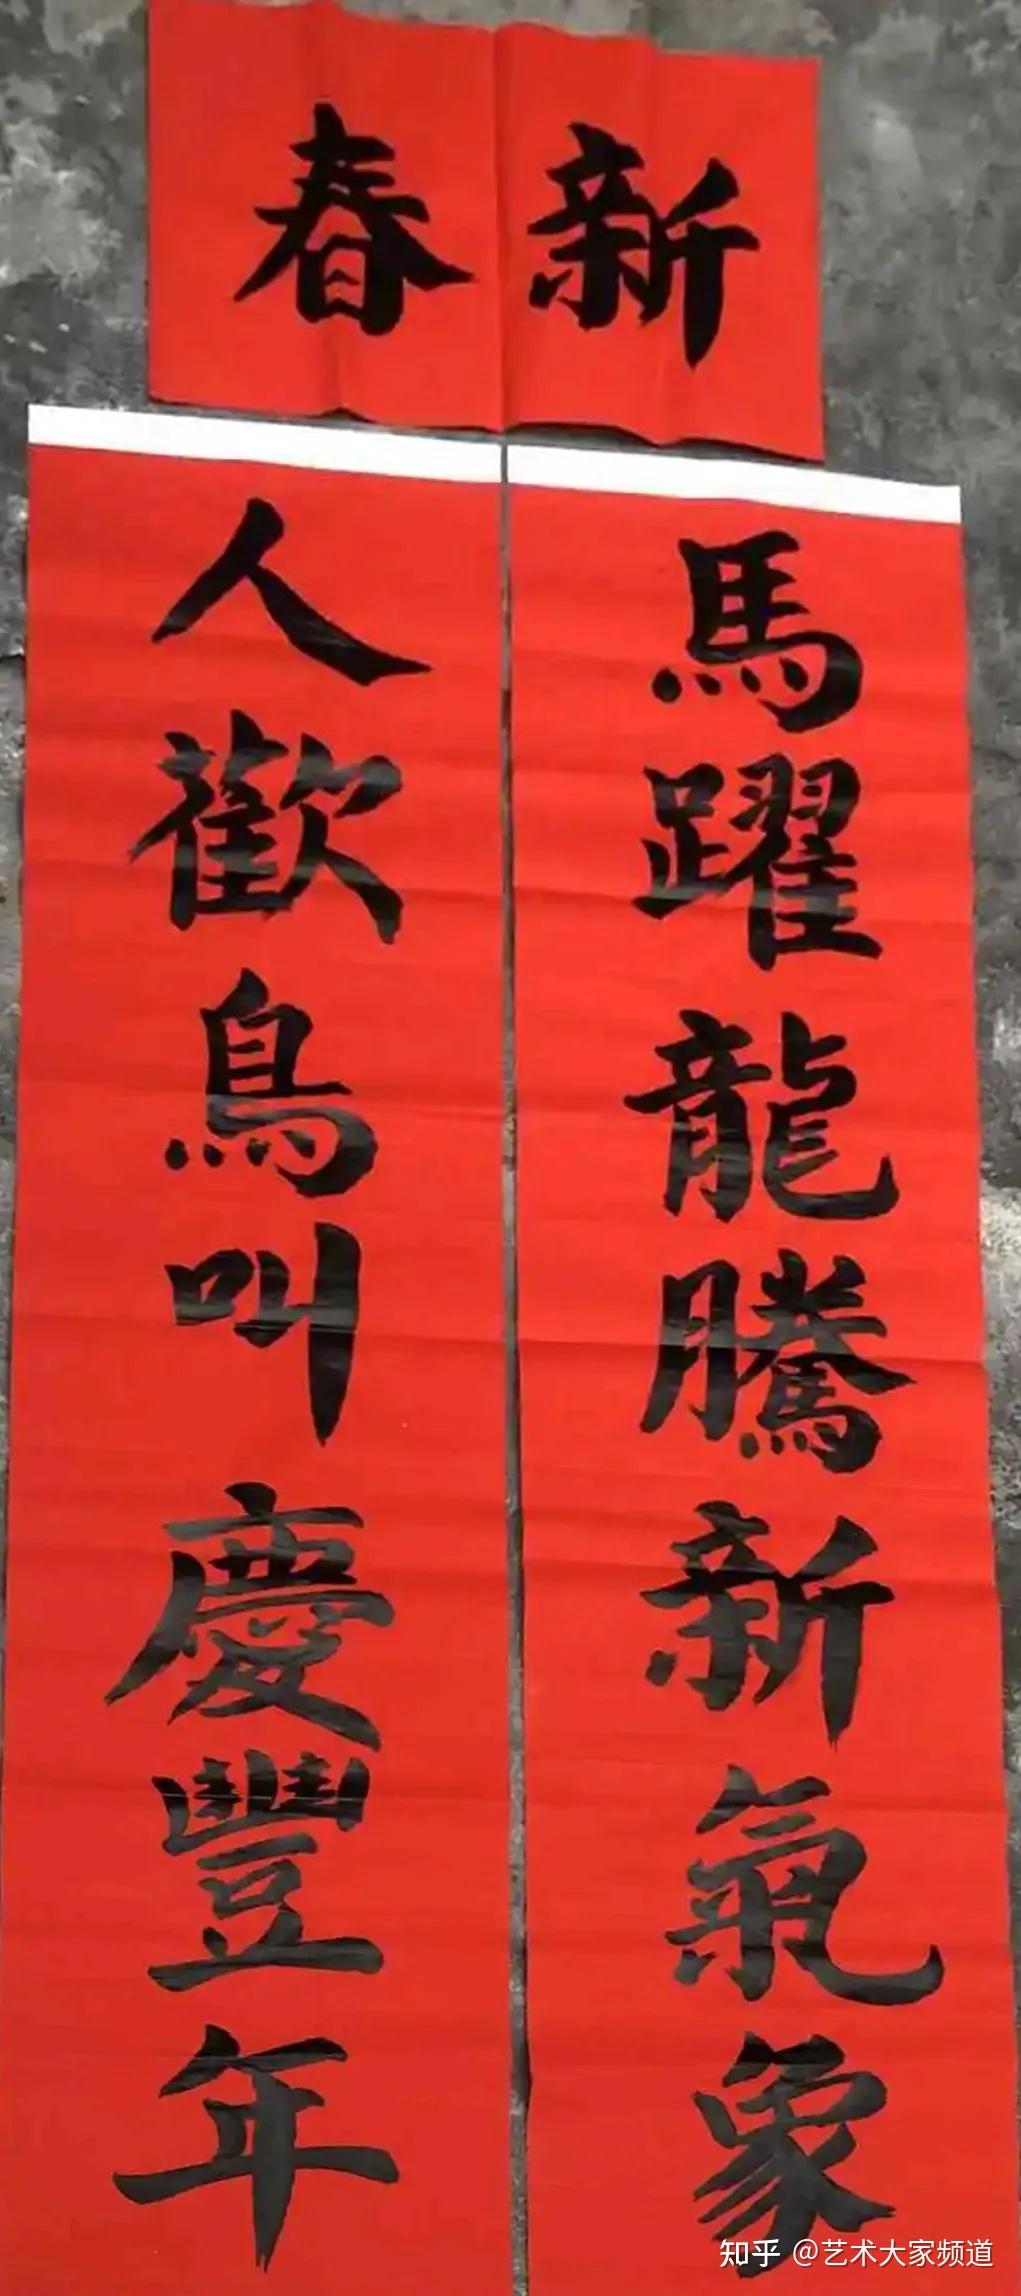 新春
馬躍龍騰新氣象
人歡鳥叫慶豐年
知乎 @艺术大家频道